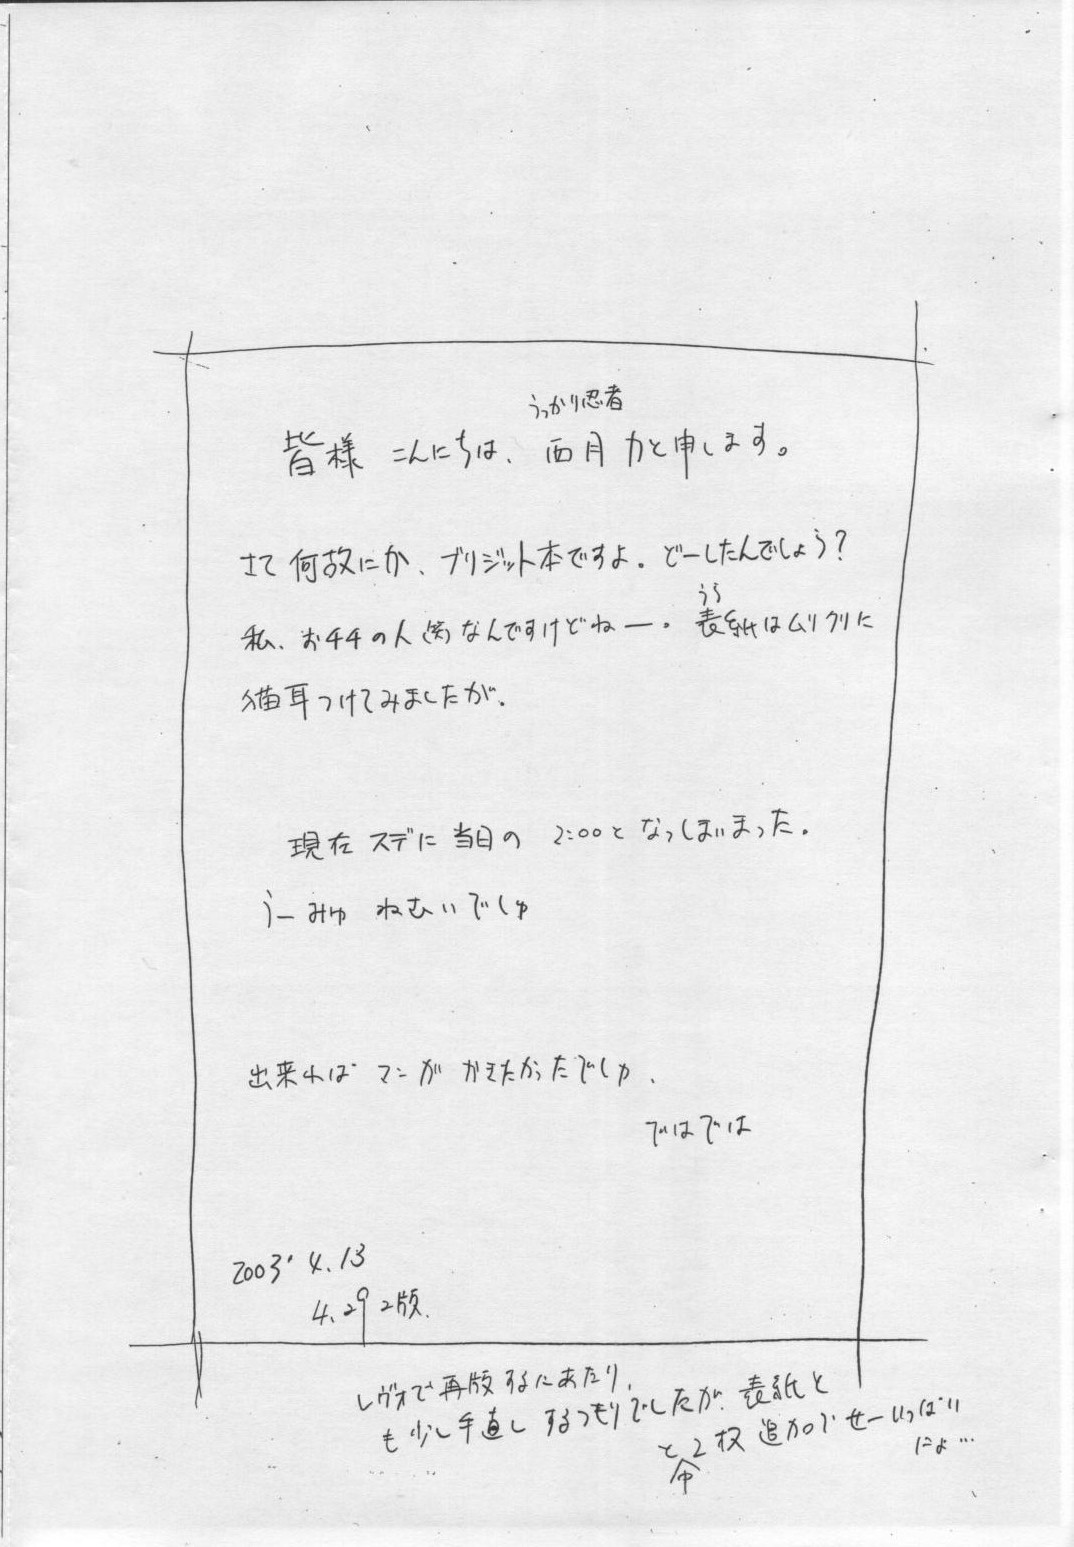 うっかり忍者
皆様 こんにちは、西月力と申します。
さて 何故にか、ブリジット本ですよ。どーしたんでしょう?
うら
私、お千千の人(笑)なんですけどねー。表紙はムリクリに
猫耳つけてみましたが、
現在 スデに 当日の 2:00と なってしまいまった。
うーみゅ ねむいでしゅ
出来れば マンガ かきたかったでしゅ、
ではでは
2003' 4.13
4.29 2版.
レヴォで再版するにあたり、
も少し手直しするつもりでしたが、表紙と
と2枚追加でせーいっぱい
中
にょ…